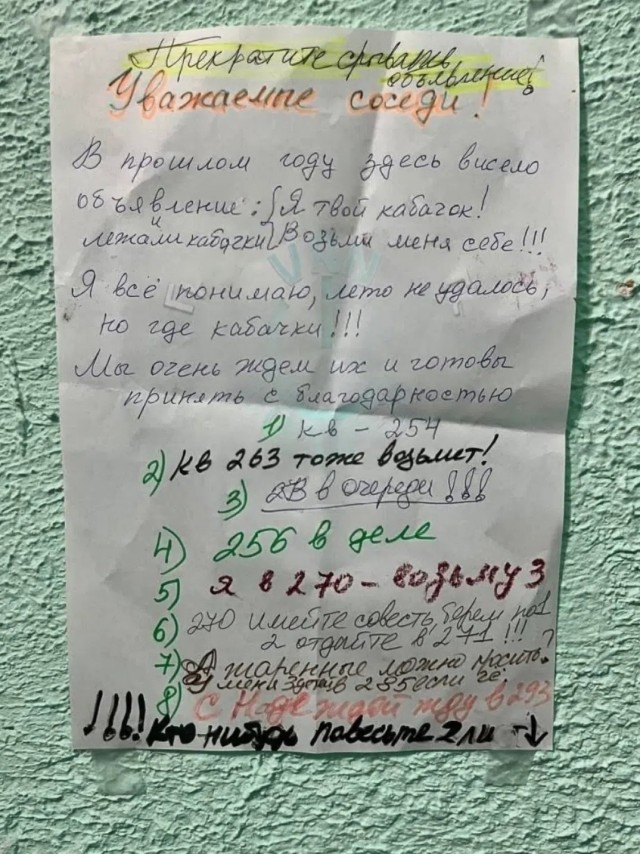 Прекратите срывать
объявление!
Уважаемые соседи!
В прошлом году здесь висело
объявление: Я твой кабачок!
и
лежали кабачки Возьми меня себе!!!
Я всё понимаю, лето не удалось,
но где кабачки!!!
Мы очень ждем их и готовы
принять с благодарностью
1) кв - 254
2) кв 263 тоже возьмет!
3) в очереди!!!
4) 256 в деле
5) Я в 270 - возьму 3
6) 270 имейте совесть, берем по 1
2 отдайте в 271!!!
7) А жаренные можно носить?
У меня в 285 если че.
8) С Надеждой жду в 293
!!!! Кто-нибудь повесьте 2 ли